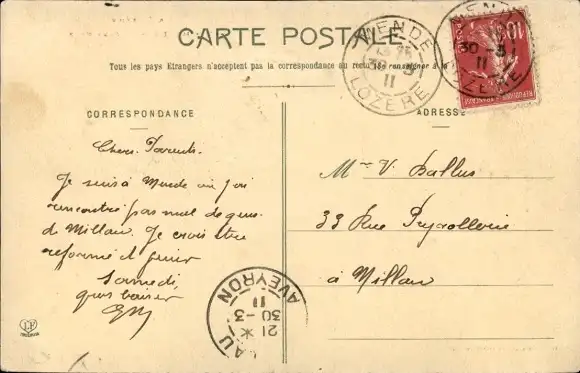 CARTE POSTALE
Tous les pays Etrangers n'acceptent pas la correspondance au recto (Se renseigner à la
CORRESPONDANCE
ADRESSE
MENDE
30 -3
11
LOZERE
MENDE
30 -3
11
LOZERE
10
POSTES
REPUBLIQUE FRANCAISE
Chers Parents.
Je suis à Mende où j'ai
rencontré pas mal de gens
de Millau. Je crois être
réformé et finir
Samedi
gros baiser
Mme V. Ballus
33 Rue Peyrollerie
à Millau
AVEYRON
21 *
30 -3
11
AU